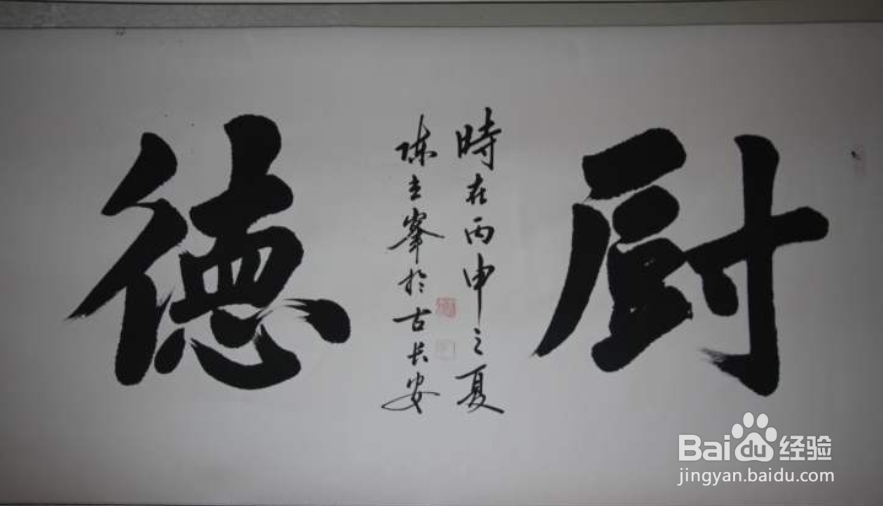 厨德
時在丙申之夏
陈立峯於古长安
Baidu经验
jingyan.baidu.com